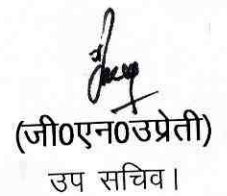 (जी0एन0उप्रेती)
उप सचिव।